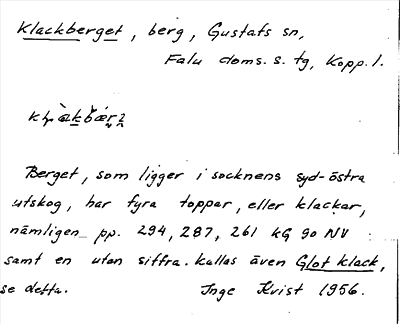 Klackberget, berg, Gustafs sn,
Falu doms. s. tg, Kopp. l.
Berget, som ligger i socknens syd-östra
utskog, har fyra toppar, eller klackar,
nämligen pp. 294, 287, 261 kG 90 NV
samt en utan siffra. Kallas även Glot klack,
se detta. Inge Kvist 1956.